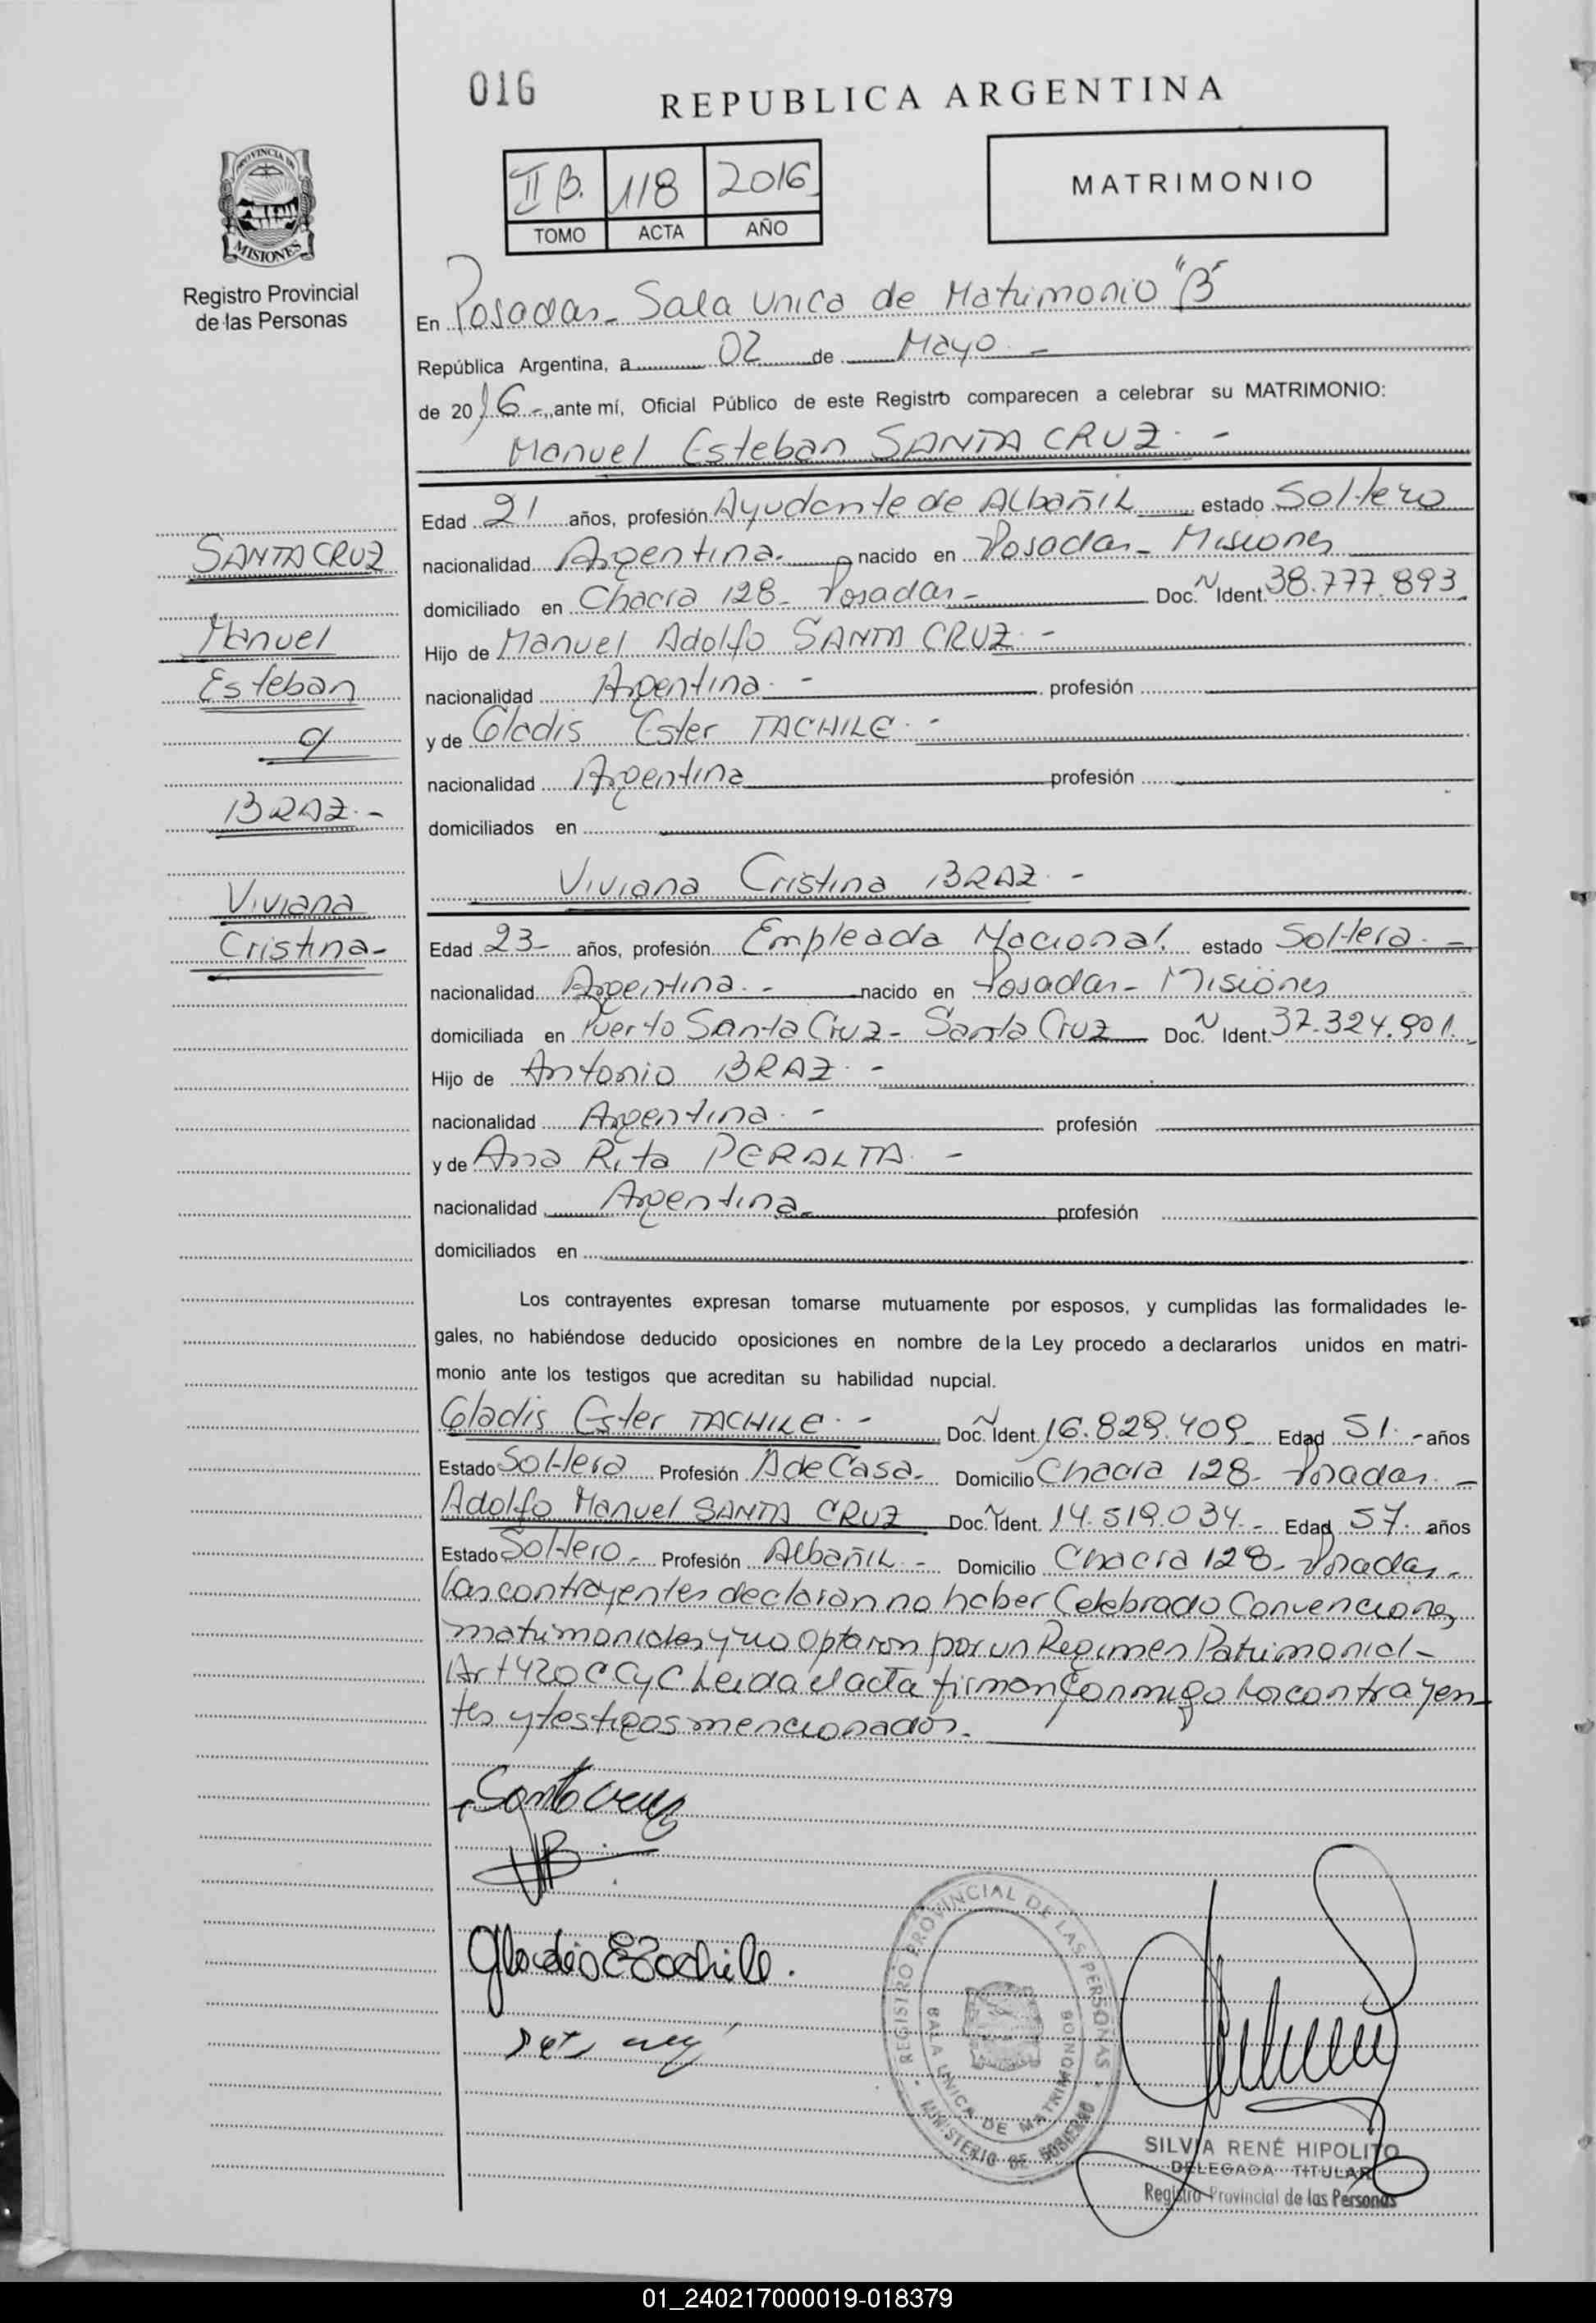 016
REPUBLICA ARGENTINA
II B. 118 2016
TOMO ACTA AÑO
MATRIMONIO
PROVINCIA DE
MISIONES
Registro Provincial
de las Personas
En Posadas- Sala Unica de Matrimonio "B"
República Argentina, a 02 de Mayo. -
de 2016-, ante mí, Oficial Público de este Registro comparecen a celebrar su MATRIMONIO:
Manuel Esteban SANTA CRUZ. -
Edad 21 años, profesión Ayudante de Albañil estado Soltero
nacionalidad Argentina- nacido en Posadas- Misiones
domiciliado en Chacra 128- Posadas- Doc. N Ident. 38.777.893
Hijo de Manuel Adolfo SANTA CRUZ. -
nacionalidad Argentina. - profesión
y de Gladis Ester TACHILE. -
nacionalidad Argentina profesión
domiciliados en
SANTA CRUZ
Manuel
Esteban
BRAZ. -
Viviana
Cristina-
Viviana Cristina BRAZ. -
Edad 23- años, profesión Empleada Nacional. estado Soltera. -
nacionalidad Argentina. - nacido en Posadas- Misiones
domiciliada en Puerto Santa Cruz- Santa Cruz Doc. N Ident. 37.324.901.
Hijo de Antonio BRAZ. -
nacionalidad Argentina. - profesión
y de Ana Rita PERALTA. -
nacionalidad Argentina- profesión
domiciliados en
Los contrayentes expresan tomarse mutuamente por esposos, y cumplidas las formalidades le-
gales, no habiéndose deducido oposiciones en nombre de la Ley procedo a declararlos unidos en matri-
monio ante los testigos que acreditan su habilidad nupcial.
Gladis Ester TACHILE. - Doc. N Ident. 16.829.409- Edad 51. - años
Estado Soltera Profesión A de Casa- Domicilio Chacra 128- Posadas. -
Adolfo Manuel SANTA CRUZ Doc. N Ident. 14.519.034.- Edad 57. años
Estado Soltero- Profesión Albañil. - Domicilio Chacra 128- Posadas-
Los contrayentes declaran no haber Celebrado Convenciones
matrimoniales y no optaron por un Regimen Patrimonial-
Art 420 CCyC Leida el acta firman conmigo los contrayen-
tes y testigos mencionados-
Gladis E Tachile.
REGISTRO PROVINCIAL DE LAS PERSONAS
SALA UNICA DE MATRIMONIOS
MINISTERIO DE GOBIERNO
SILVIA RENÉ HIPOLITO
DELEGADA TITULAR
Registro Provincial de las Personas
01_240217000019-018379